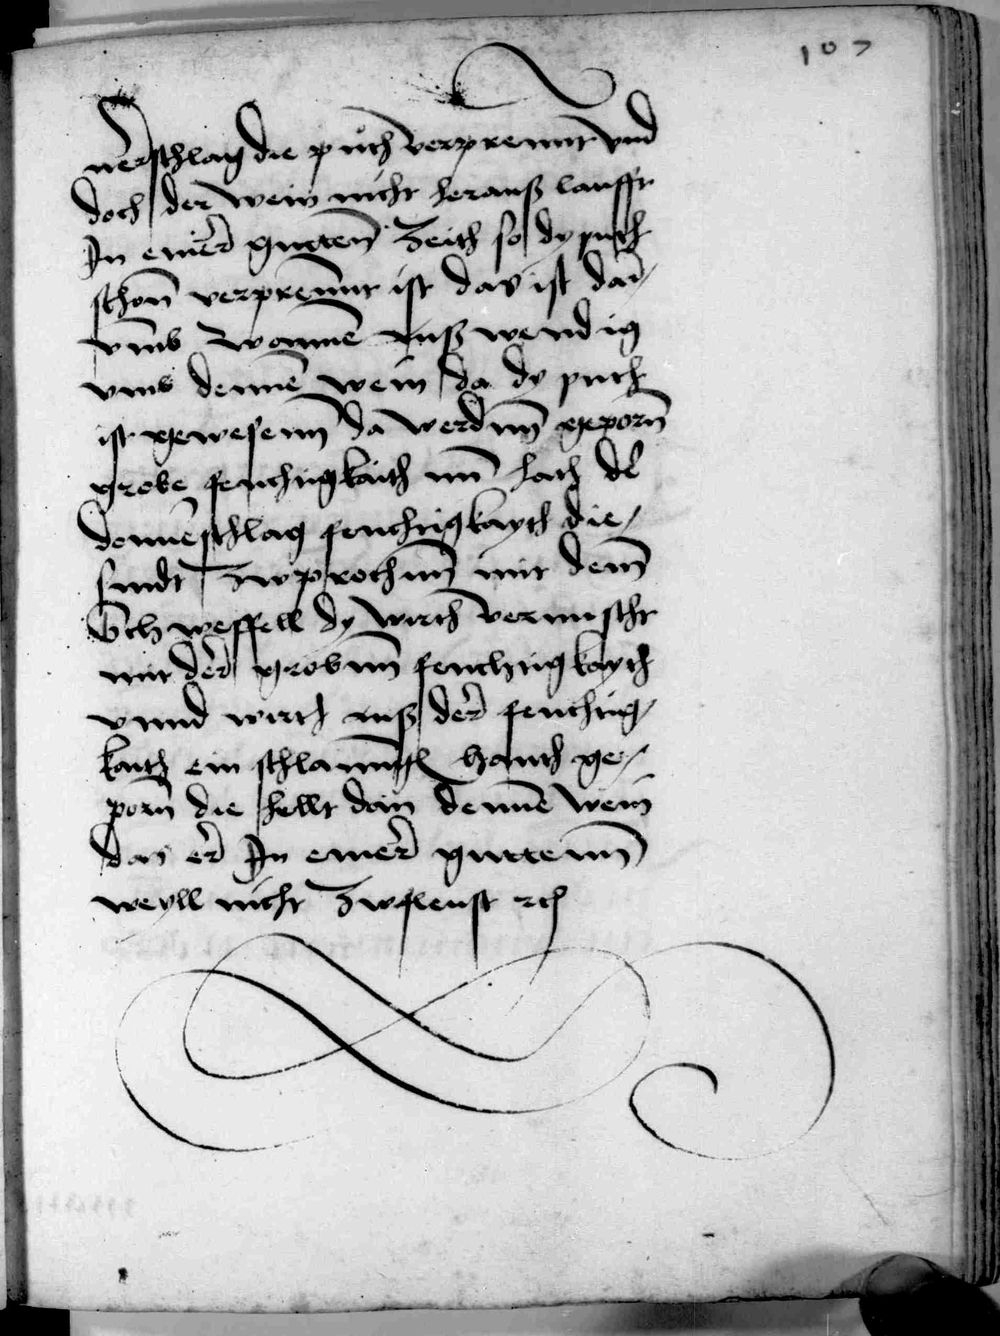 107
nerschlag die puch verprennt vnd
doch der wein nicht herauß laufft
In einer gutten zeith so dy puch
schon verprennt ist das ist dar
vmb wonnen auß wendig
vmb dennen wein da dy puch
ist gewesenn da werdnn geporn
grobe feuchtigkaith nun hath der
donnerschlag feuchtigkayth die
sindt zwprochnn mit dem
Schweffell dy wirth vermischt
mit der grobnn feuchtigkayth
vnnd wirth auß der feuchtig
kaith ein hauth ge
porn die hellt dan dennen wein
das er In einer guttenn
weyll nicht zwfleust etc